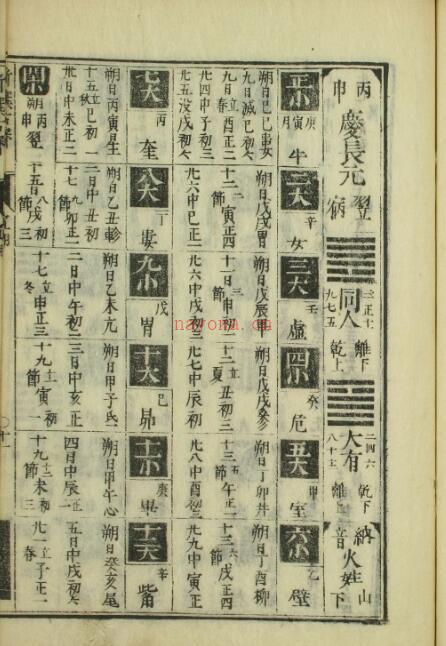 丙申 慶長元 翌 病
同人 三正十 九七五 離下 乾上
大有 二四六 八十十 乾下 離上
納音 火姓 山下
正小 庚寅月 牛
朔日己巳
九日滅巳初
九日立春酉正二
廿四中子初三
廿五没戌初
二大 辛 女
朔日戊戌胃
十二 節寅正四
廿六中巳正二
三大 壬 虚
朔日戊辰畢
十一 三節申初
廿六中戌初三
四小 癸 危
朔日戊戌參
十二 立夏丑初三
廿七中辰初
五大 甲 室
朔日丁卯井
十三 五節午正一
廿八中酉初
六小 乙 壁
朔日丁酉柳
十三 六節戌正四
廿九中寅正
七大 丙 奎
朔日丙寅星
十五立秋巳初一
廿日中未正二
閏小 朔丙申翌
十五日 八節戌初三
八大 丁 婁
朔日乙丑軫
二日中丑初
十七 九節卯正一
九小 戊 胃
朔日乙未亢
二日中午初三
十七 立冬申正三
十大 己 昴
朔日甲子氐
三日中亥正
十九 十一節寅初一
十一小 庚 畢
朔日甲午心
四日中辰正一
十九 十二節未初三
十二大 辛 觜
朔日癸亥尾
五日中戌初
廿一立春子正一
nayona.cn